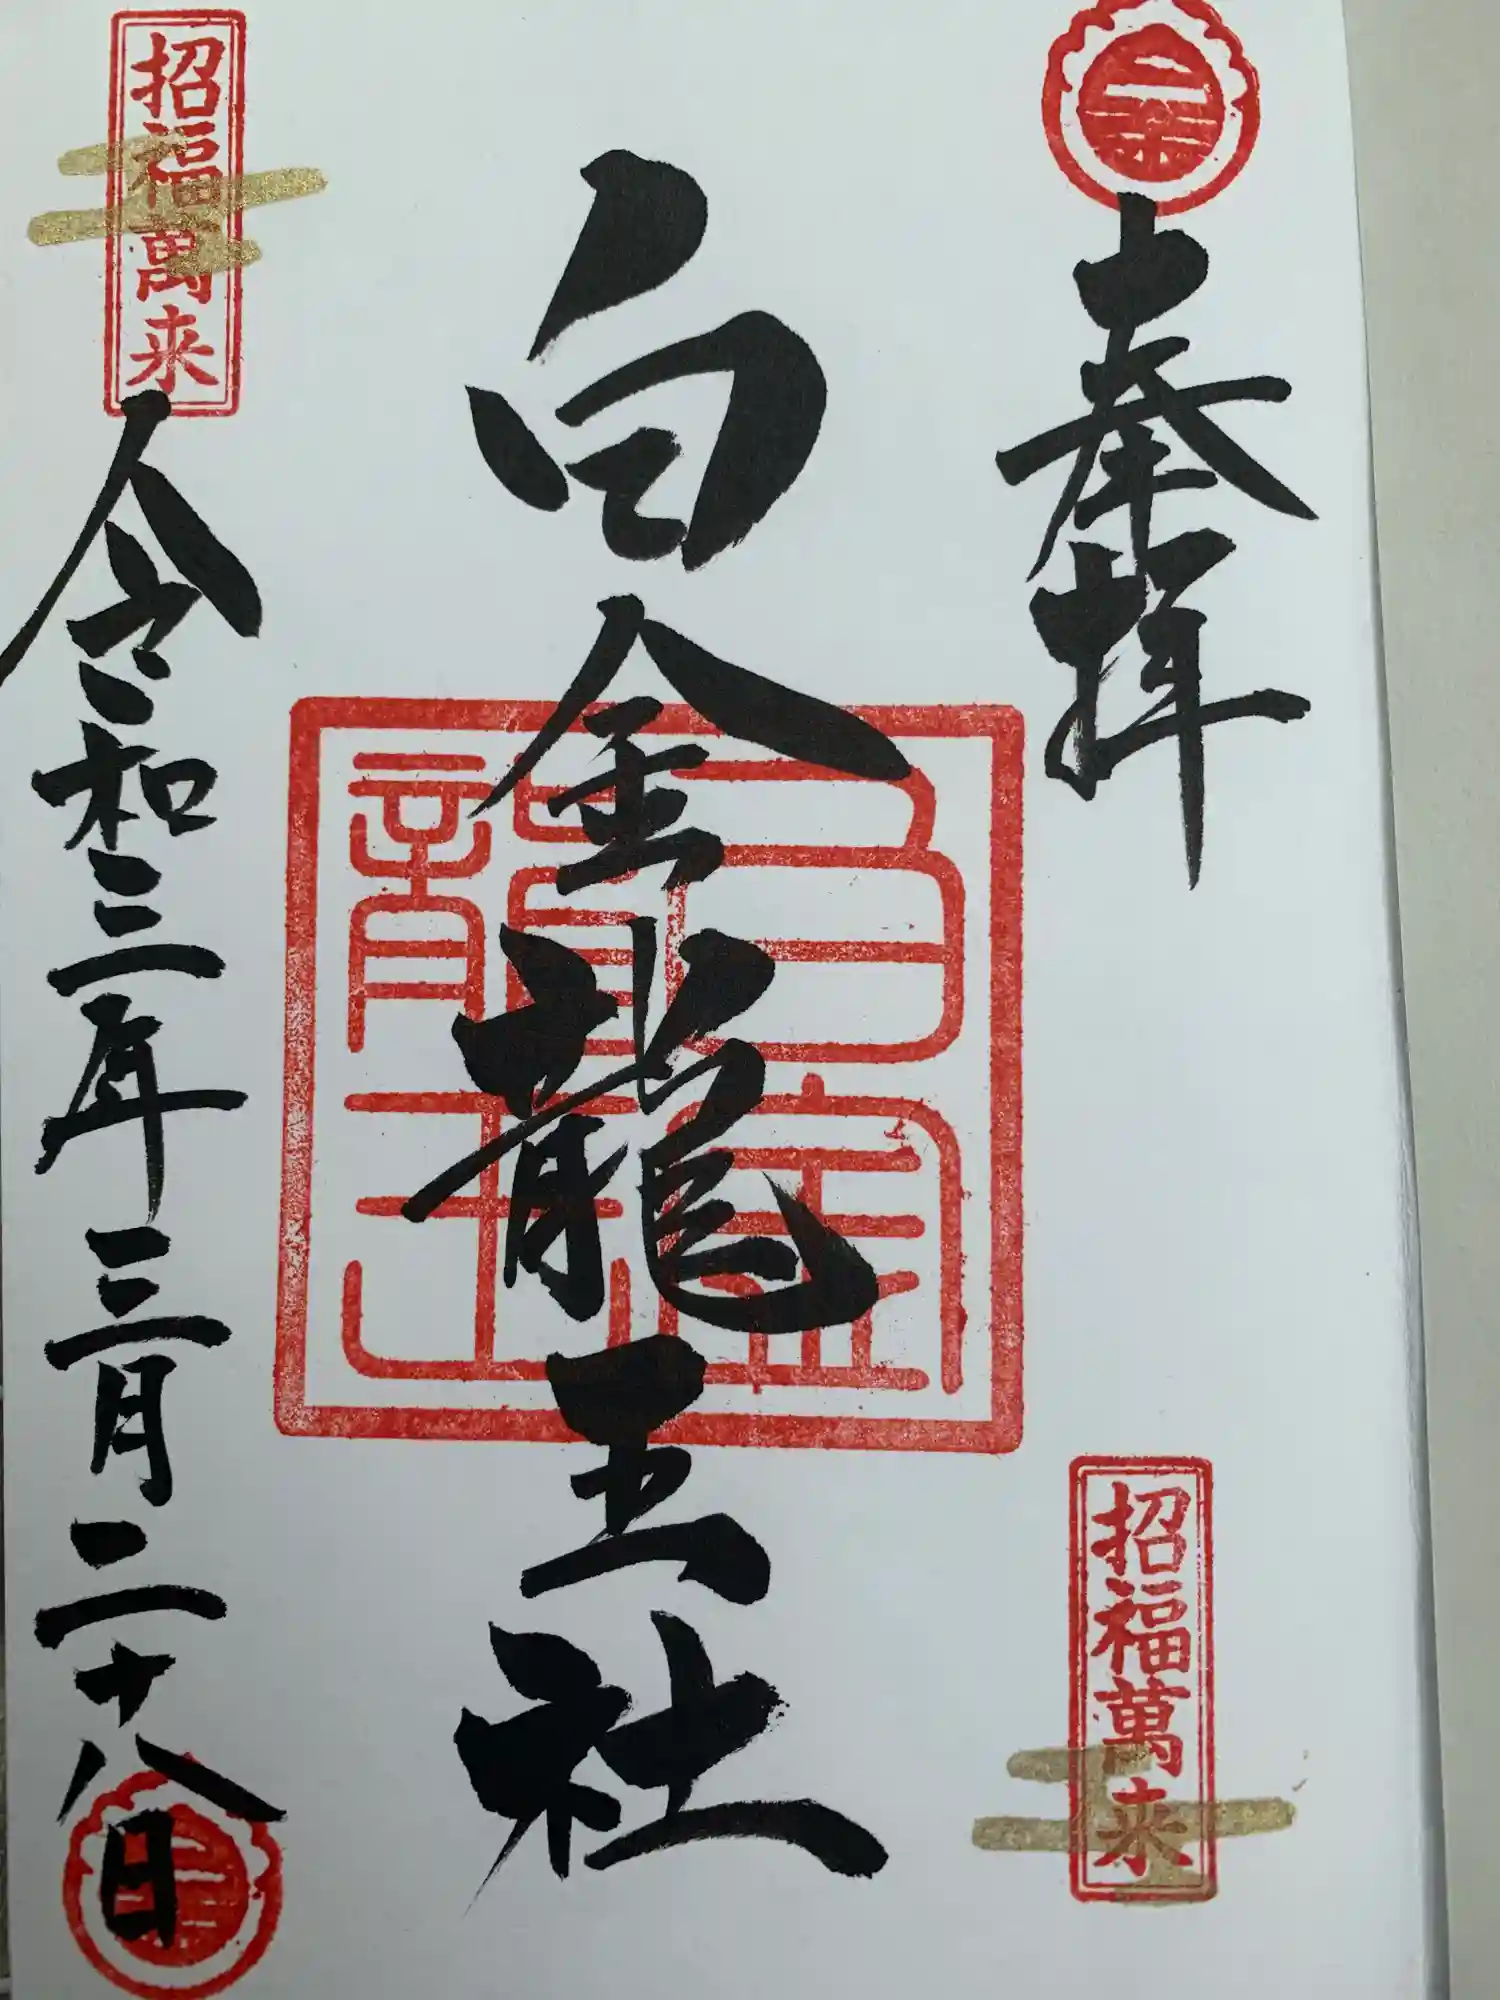 奉拝
招福萬来
白金龍王社
白金龍王
招福萬来
令和三年三月二十八日